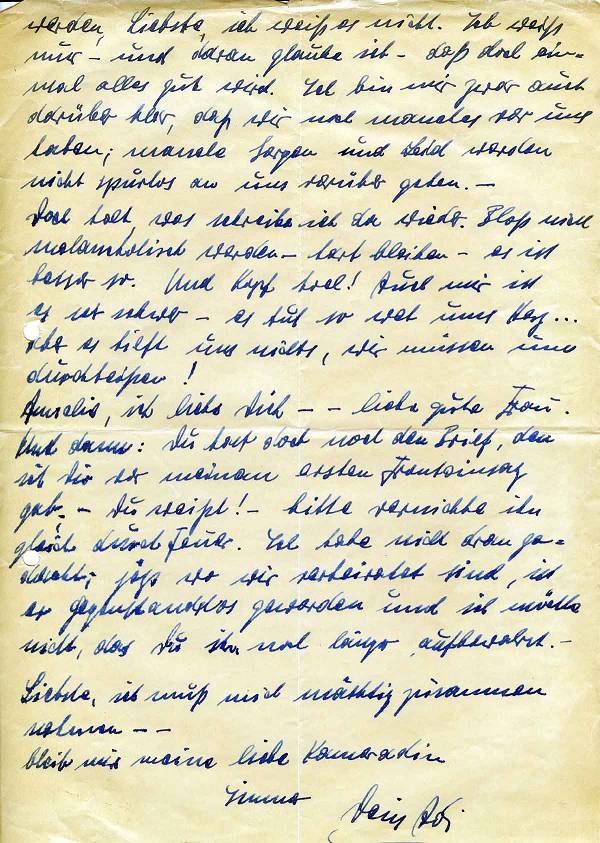 werden, Liebste, ich weiß es nicht. Ich weiß
nur – und daran glaube ich – daß doch ein-
mal alles gut wird. Ich bin mir zwar auch
darüber klar, daß wir noch manches vor uns
haben; manche Sorgen und Leid werden
nicht spurlos an uns vorüber gehen. –
Doch halt, was schreibe ich da wieder. Bloß nicht
melancholisch werden – hart bleiben – es ist
besser so. Und Kopf hoch! Auch mir ist
es so schwer – es tut so weh ums Herz...
aber es hilft uns nichts, wir müssen uns
durchbeißen!
Annelie, ich liebe Dich – – liebe gute Frau.
Und dann: Du hast doch noch den Brief, den
ich Dir vor meinem ersten Fronteinsatz
gab. – Du weißt! – bitte vernichte ihn
gleich durch Feuer. Ich habe nicht dran ge-
dacht; jetzt wo wir verheiratet sind, ist
er gegenstandslos geworden und ich möchte
nicht, das Du ihn noch länger aufbewahrst. –
Liebste, ich muß mich mächtig zusammen
nehmen – –
bleib mir meine liebe Kameradin
Immer Dein Adi